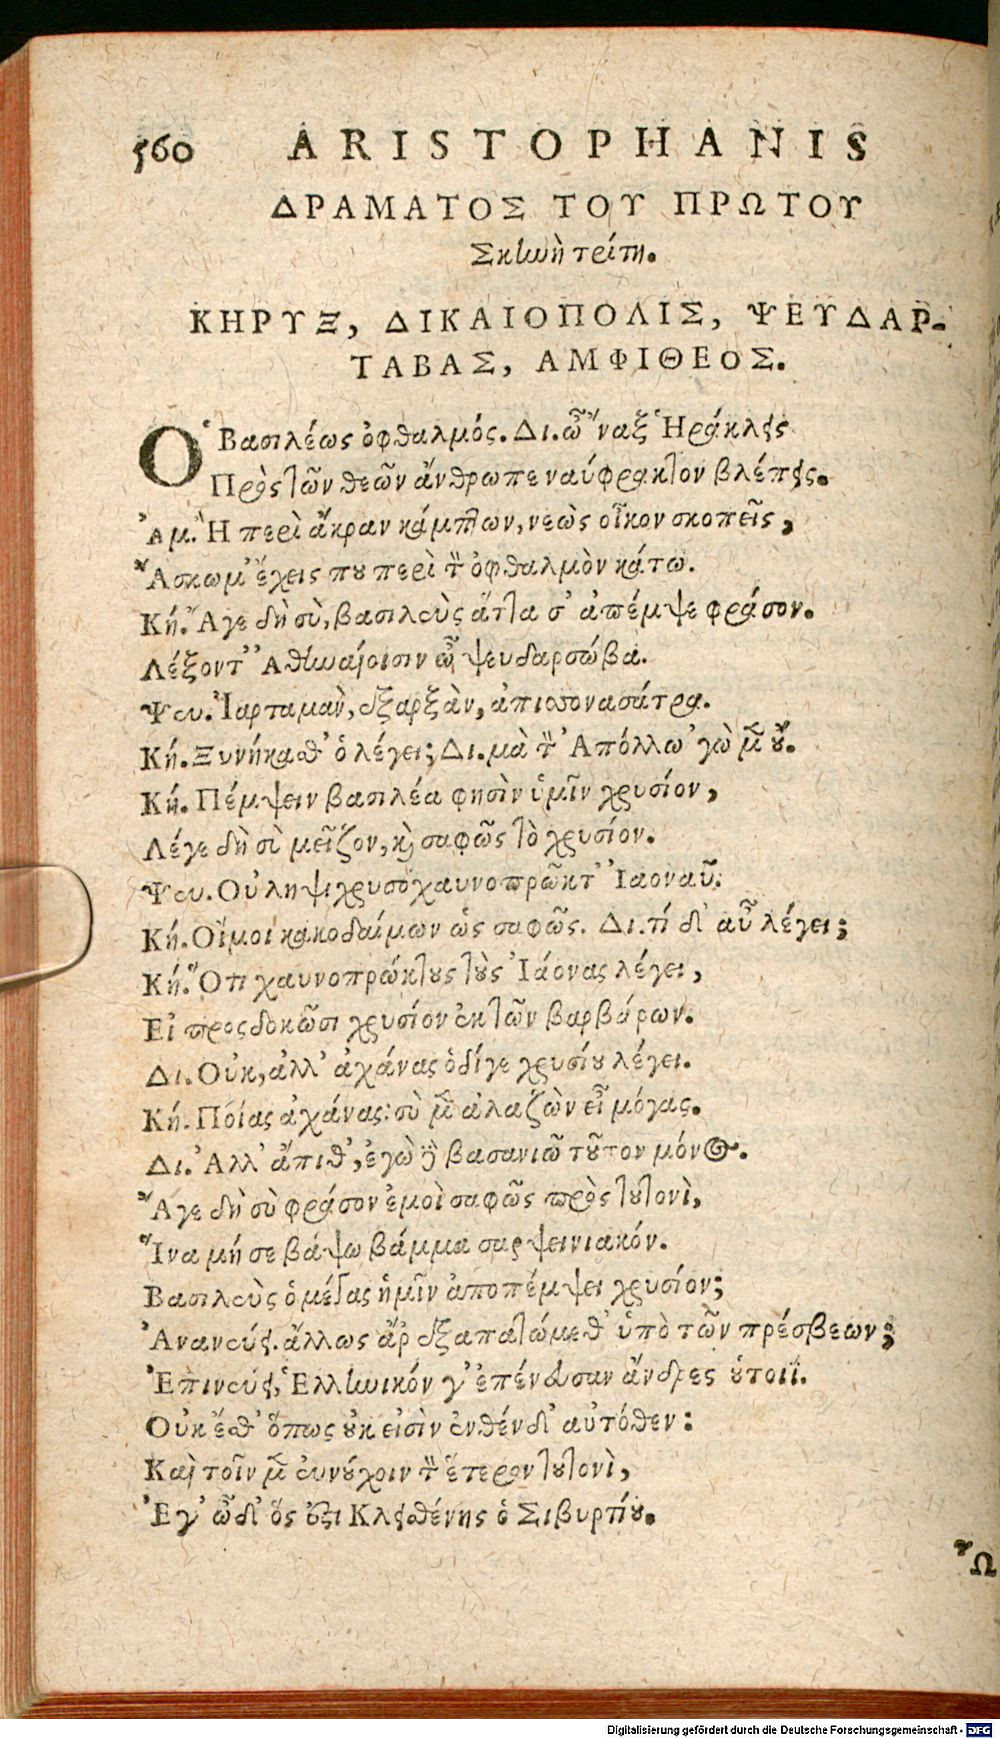 560 ARISTOPHANIS
ΔΡΑΜΑΤΟΣ ΤΟΥ ΠΡΩΤΟΥ
Σκηνὴ τρίτη.
ΚΗΡΥΞ, ΔΙΚΑΙΟΠΟΛΙΣ, ΨΕΥΔΑΡ-
ΤΑΒΑΣ, ΑΜΦΙΘΕΟΣ.
Ὁ Βασιλέως ὀφθαλμός. Δι. ὦ ̓́ναξ Ἡράκλεις
Πρὸς τῶν θεῶν ἄνθρωπε ναύφρακτον βλέπεις.
Ἀμ. Ἢ περὶ ἄκραν κάμπτων, νεὼς οἶκον σκοπεῖς,
Ἄσκωμ' ἔχεις που περὶ τὸν ὀφθαλμὸν κάτω.
Κή. Ἄγε δὴ σὺ, βασιλεὺς ἅττα σ' ἀπέμψε φράσον.
Λέξοντ' Ἀθηναίοισιν ὦ ψευδαρτάβα.
Ψευ. Ἰαρταμαὺ, ἐξαρξὰν, ἀπισσονασάτρα.
Κή. Ξυνήκαθ' ὁ λέγει; Δι. μὰ τὸν Ἀπόλλω 'γὼ μὲν οὔ.
Κή. Πέμψειν βασιλέα φησὶν ὑμῖν χρυσίον,
Λέγε δὴ σὺ μεῖζον, καὶ σαφῶς τὸ χρυσίον.
Ψευ. Οὐ ληψι χρυσὸ χαυνοπρῶκτ' Ἰαοναῦ.
Κή. Οἴμοι κακοδαίμων ὡς σαφῶς. Δι. τί δ' αὖ λέγει;
Κή. Ὅτι χαυνοπρώκτους τοὺς Ἰάονας λέγει,
Εἰ προςδοκῶσι χρυσίον ἐκ τῶν βαρβάρων.
Δι. Οὐκ, ἀλλ' ἀχάνας ὁδίγε χρυσίου λέγει.
Κή. Ποίας ἀχάνας: σὺ μὲν ἀλαζὼν εἶ μόγας.
Δι. Ἀλλ' ἄπιθ', ἐγὼ δὲ βασανιῶ τοῦτον μόνος.
Ἄγε δὴ σὺ φράσον ἐμοὶ σαφῶς πρὸς τουτονὶ,
Ἵνα μή σε βάψω βάμμα σαρψεινιακόν.
Βασιλεὺς ὁ μέγας ἡμῖν ἀποπέμψει χρυσίον;
Ἀνανεύει. ἄλλως ἄρ' ἐξαπατώμεθ' ὑπὸ τῶν πρέσβεων;
Ἐπινεύει, Ἑλληνικόν γ' ἐπένευσαν ἄνδρες οὑτοιΐ.
Οὐκ ἔθ' ὅπως οὐκ εἰσὶν ἐνθένδ' αὐτόθεν:
Καὶ τοῖν μὲν εὐνούχοιν τὸν ἕτερον τουτονὶ,
Ἐγ' ᾦδ' ὅς ἐστι Κλεισθένης ὁ Σιβυρτίου.
Ὦ
Digitalisierung gefördert durch die Deutsche Forschungsgemeinschaft - DFG